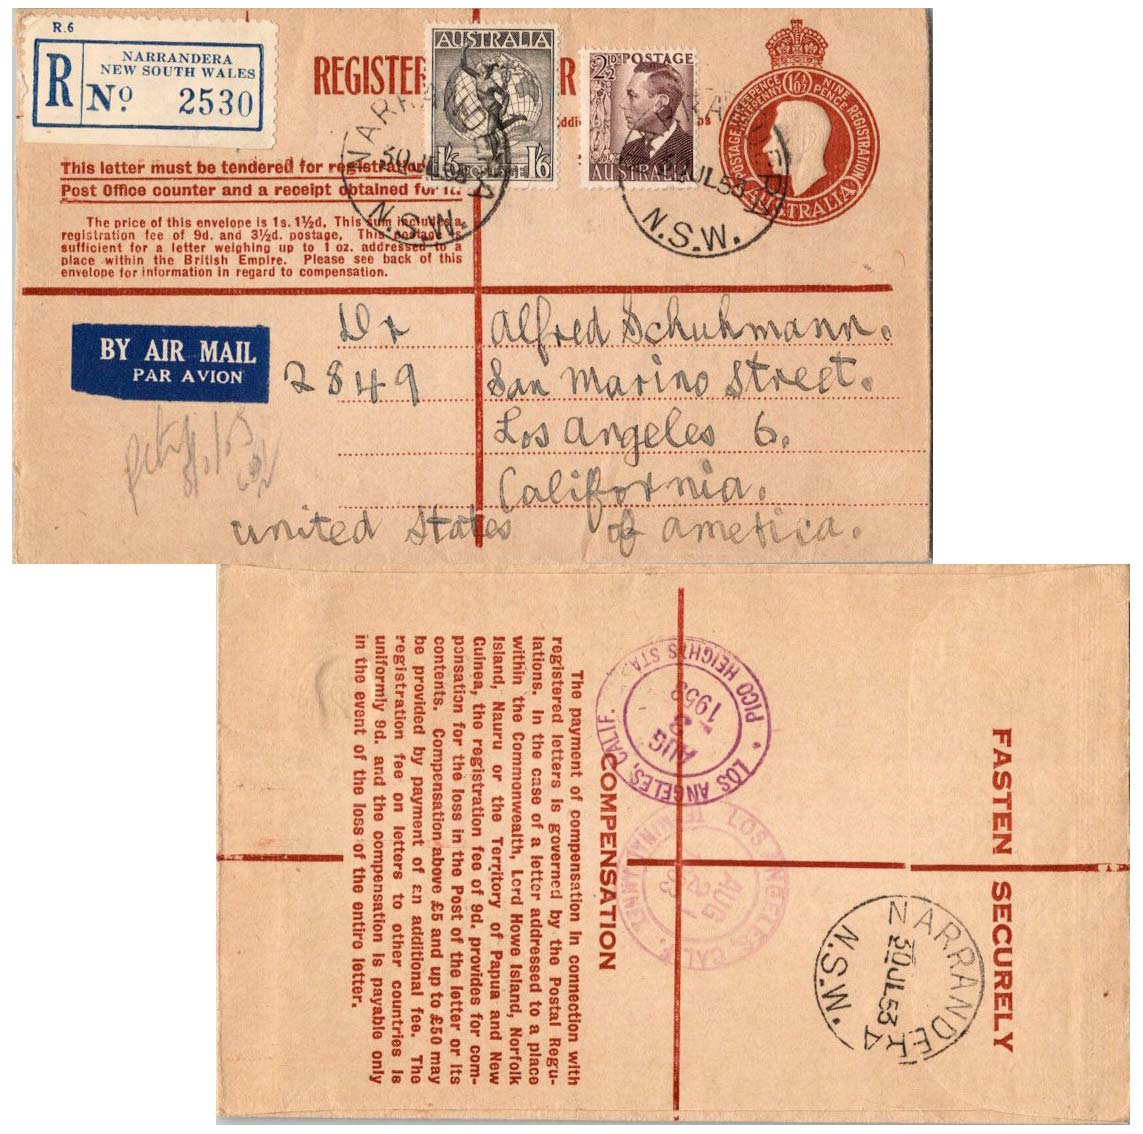 R.6
R
NARRANDERA
NEW SOUTH WALES
No 2530
REGISTER
R
AUSTRALIA
1/6 POSTAGE 1/6
2½D POSTAGE
AUSTRALIA
POSTAGE THREEPENCE HALFPENNY
NINE PENCE REGISTRATION
AUSTRALIA
This letter must be tendered for registration
Post Office counter and a receipt obtained for it.
The price of this envelope is 1s. 1½d. This sum includes a
registration fee of 9d. and 3½d. postage. This postage is
sufficient for a letter weighing up to 1 oz. addressed to a
place within the British Empire. Please see back of this
envelope for information in regard to compensation.
30 JUL 53
N.S.W.
JUL 53
N.S.W.
BY AIR MAIL
PAR AVION
Dr Alfred Schuhmann.
2849 San Marino Street.
Los Angeles 6.
California.
United States of America.
COMPENSATION
The payment of compensation in connection with
registered letters is governed by the Postal Regu-
lations. In the case of a letter addressed to a place
within the Commonwealth, Lord Howe Island, Norfolk
Island, Nauru or the Territory of Papua and New
Guinea, the registration fee of 9d. provides for com-
pensation for the loss in the Post of the letter or its
contents. Compensation above £5 and up to £50 may
be provided by payment of an additional fee. The
registration fee on letters to other countries is
uniformly 9d. and the compensation is payable only
in the event of the loss of the entire letter.
LOS ANGELES, CALIF.
PICO HEIGHTS STA.
AUG
3
1953
LOS ANGELES CALIF.
TERMINAL ANNEX
AUG
2
53
NARRANDERA
30 JUL 53
N.S.W.
FASTEN SECURELY